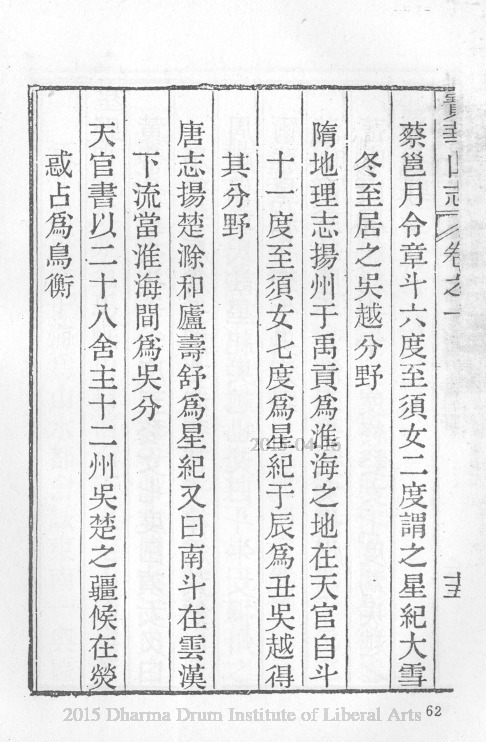 寶華山志 卷之一
十五
蔡邕月令章斗六度至須女二度謂之星紀大雪
冬至居之吳越分野
隋地理志揚州于禹貢爲淮海之地在天官自斗
十一度至須女七度爲星紀于辰爲丑吳越得
其分野
唐志揚楚滁和廬壽舒爲星紀又曰南斗在雲漢
下流當淮海間爲吳分
天官書以二十八舍主十二州吳楚之疆候在熒
惑占爲鳥衡
62
2015 Dharma Drum Institute of Liberal Arts